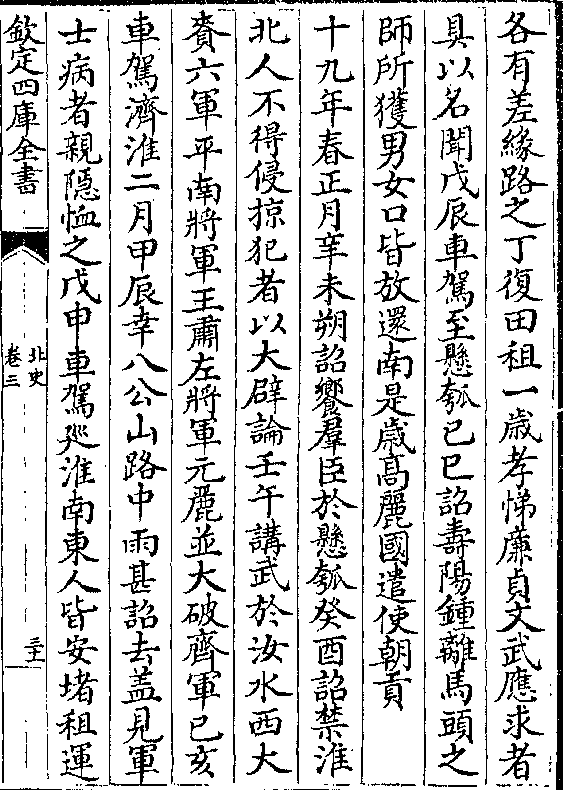 各有差緣路之丁復田租一歲孝悌㢘貞文武應求者
具以名聞戊辰車駕至懸瓠己巳詔壽陽鍾離馬頭之
師所獲男女口皆放還南是歲髙麗國遣使朝貢
十九年春正月辛未朔詔饗羣臣於懸瓠癸酉詔禁淮
北人不得侵掠犯者以大辟論壬午講武於汝水西大
賚六軍平南將軍王肅左將軍元麗並大破齊軍己亥
車駕濟淮二月甲辰幸八公山路中雨甚詔去盖見軍
士病者親隠恤之戊申車駕廵淮南東人皆安堵租運
欽定四庫全書
北史
卷三
三十